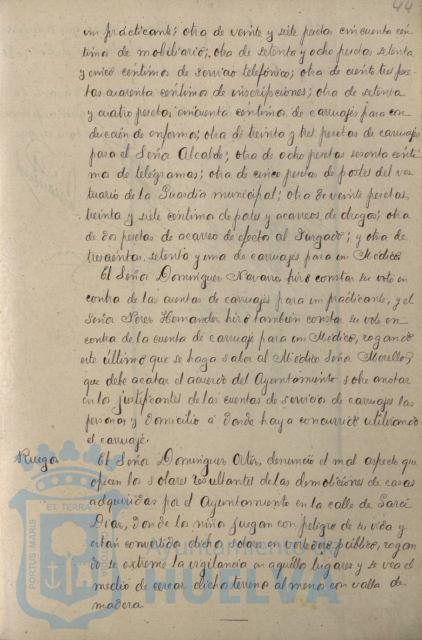 44
un practicante; otra de veinte y siete pesetas cincuenta cén-
timos de mobiliario; otra de setenta y ocho pesetas setenta
y cinco céntimos de servicio telefónico; otra de ciento tres pe-
setas cuarenta céntimos de inscripciones; otra de setenta
y cuatro pesetas cincuenta céntimos de carruajes para con-
ducción de enfermos; otra de treinta y tres pesetas de carruajes
para el Señor Alcalde; otra de ocho pesetas sesenta cénti-
mos de telegramas; otra de cinco pesetas de portes del ves-
tuario de la Guardia municipal; otra de veinte pesetas
treinta y siete céntimos de portes y acarreos de drogas; otra
de dos pesetas de acarreo de efectos al Juzgado; y otra de
trescientas setenta y una de carruajes para un Médico.
El Señor Dominguez Navarro hizo constar su voto en
contra de las cuentas de carruajes para un practicante, y el
Señor Perez Hernandez hizo también constar su voto en
contra de la cuenta de carruaje para un Médico, rogando
este último que se haga saber al Médico Señor Morello
que debe acatar el acuerdo del Ayuntamiento sobre anotar
en los justificantes de las cuentas de servicio de carruajes las
personas y domicilio a donde haya concurrido utilizando
el carruaje.
Ruego
El Señor Dominguez Ortiz, denunció el mal aspecto que
ofrecen los solares resultantes de las demoliciones de casas
adquiridas por el Ayuntamiento en la calle de Garci
Diaz, donde los niños juegan con peligro de su vida y
están convertidos dichos solares en vertedero público, rogan-
do se extreme la vigilancia en aquellos lugares y se vea el
medio de cercar dicho terreno al menos con valla de
madera.
PORTUS MARIS
ET TERRAE
Ayuntamiento de
HUELVA